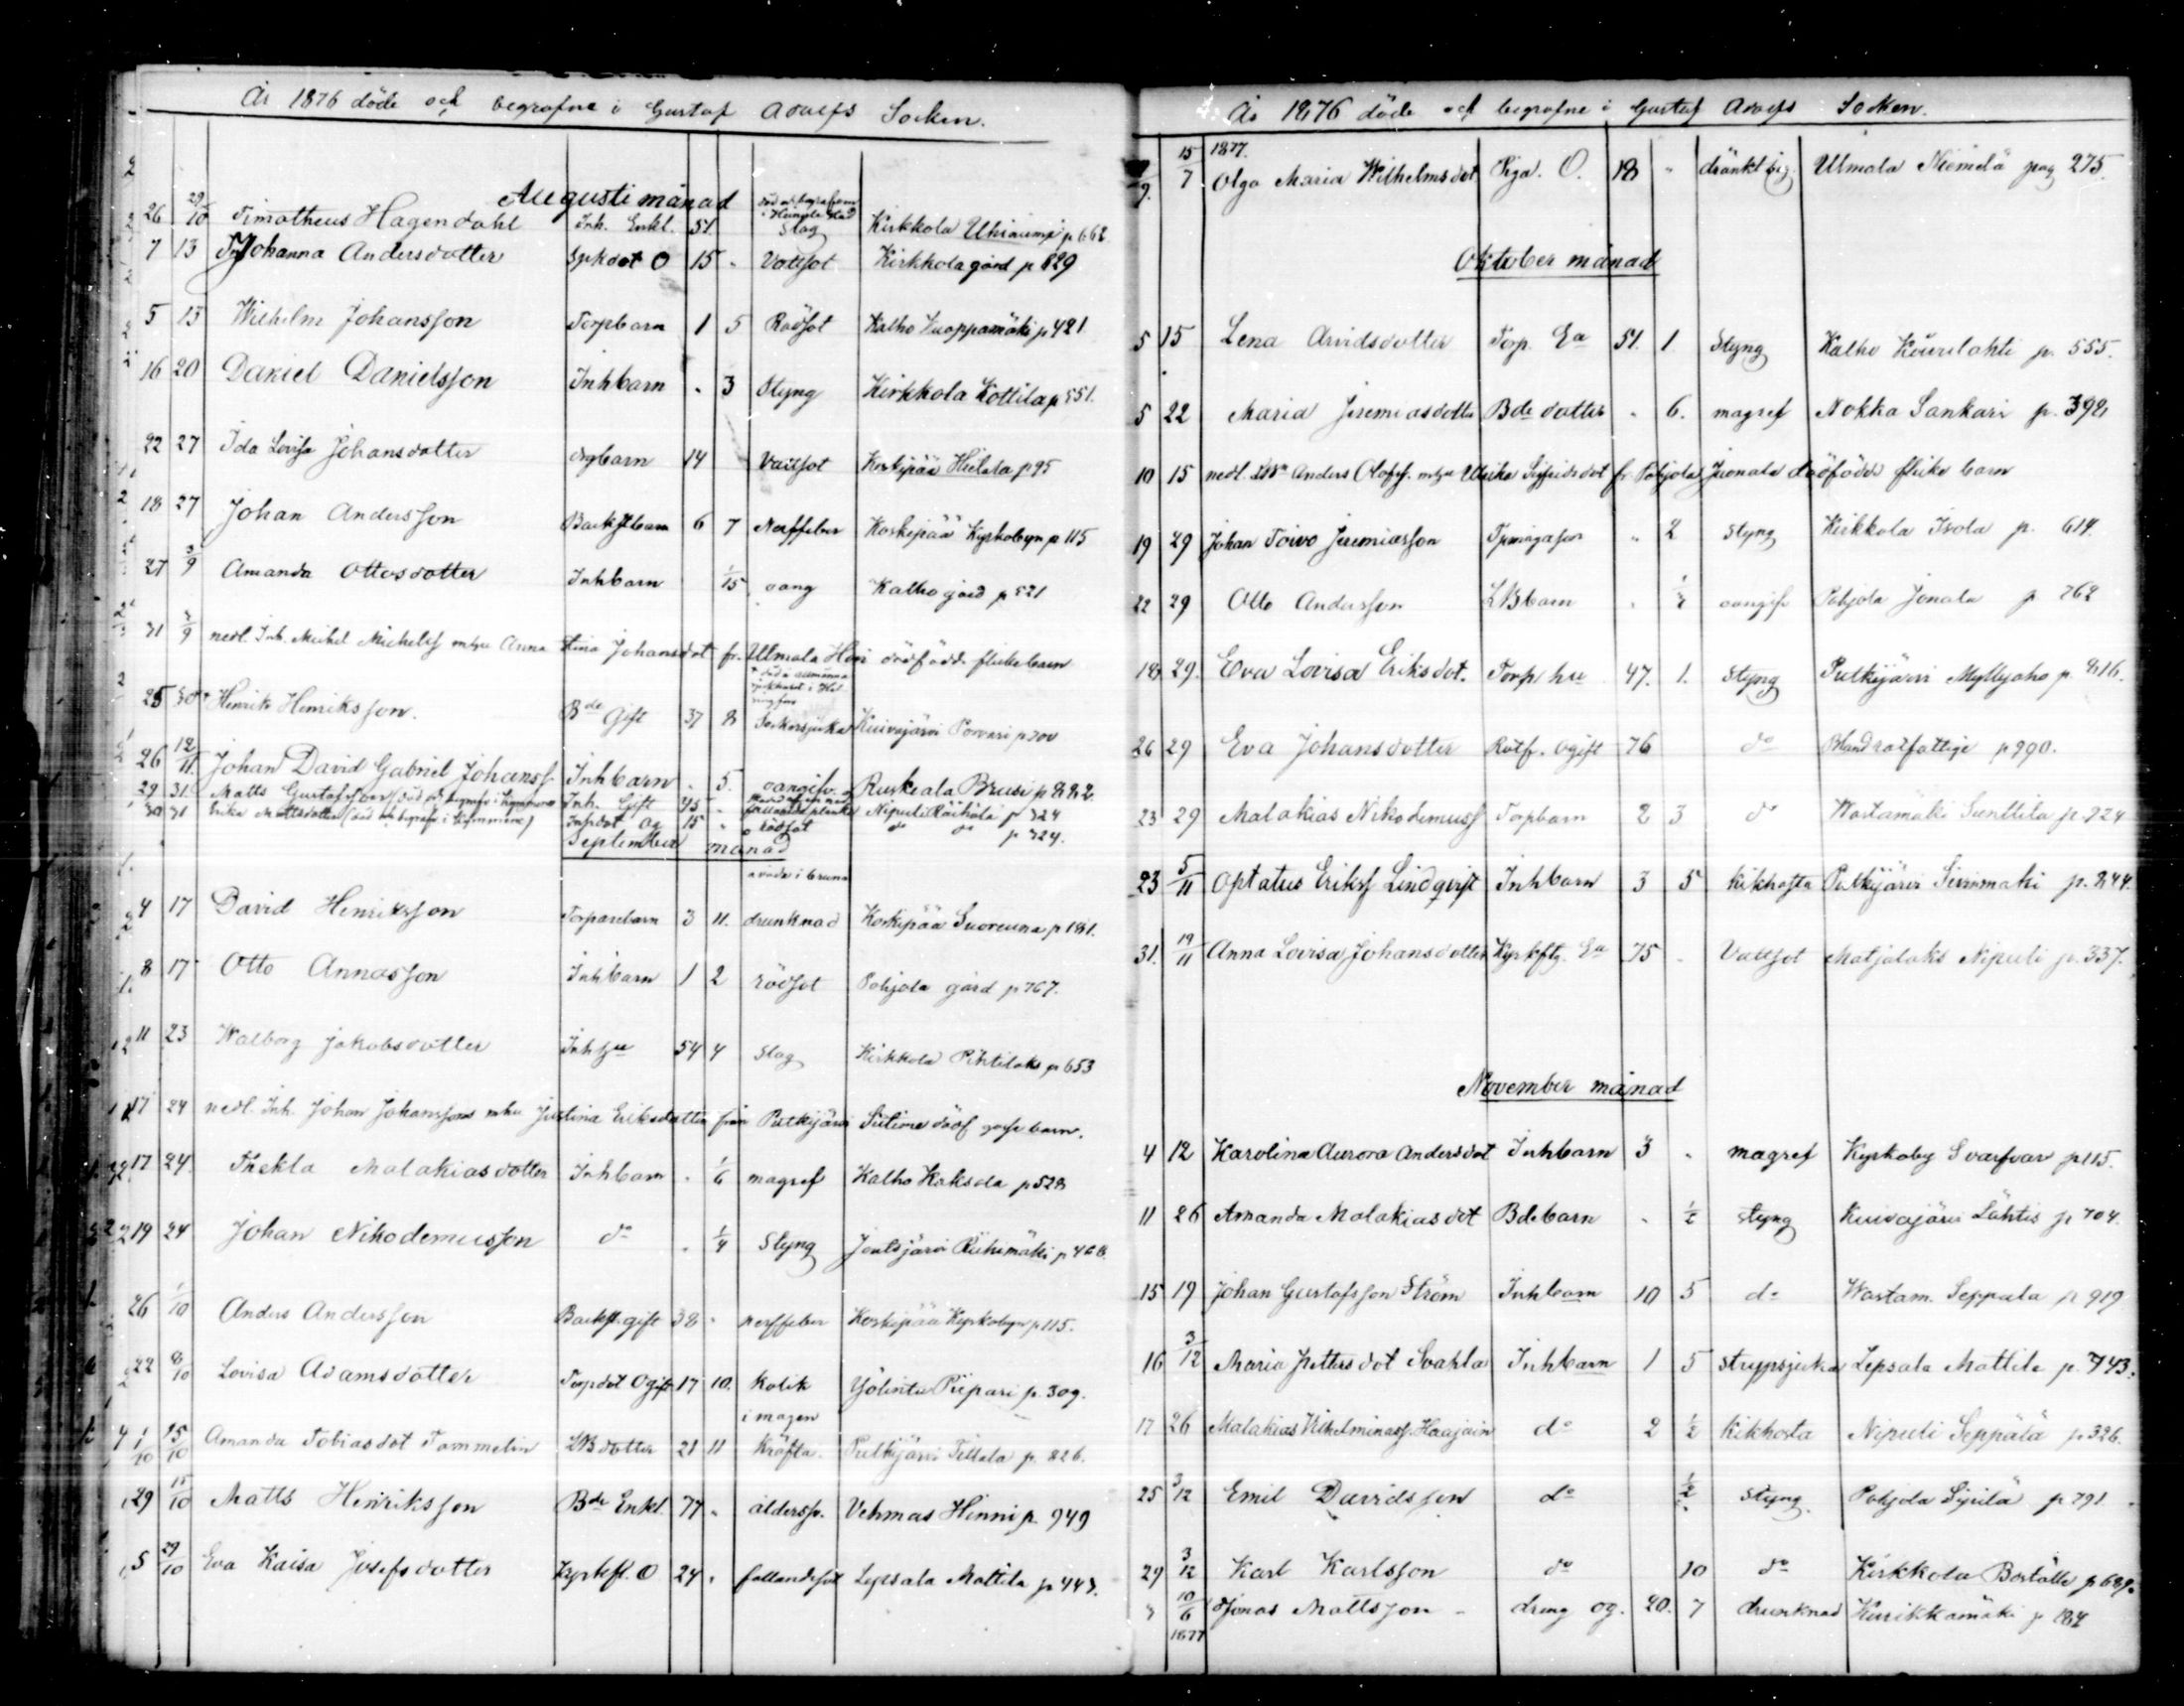 År 1876 döde och begrafne i Gustaf Adolfs Socken.
Augusti månad
26 29/10 Timotheus Hagendahl Inh. Enkl. 51. Slag Kirkkola p 662
7 13 Johanna Andersdotter O 15 " Kirkkola gård p 629
5 13 Wilhelm Johansson Torpbarn 1 5 Rödsot Kalho Vuoppamäki p 421
16 20 Daniel Danielsson Inhbarn " 3 Styng Kirkkola Kottila p 551.
22 27 Ida Lovisa Johansdotter 14 Vattsot Koskipää Hietala p 95
18 27 Johan Andersson Backstbarn 6 7 Nerffeber Koskipää Kyrkobyn p 115
27 3/9 Amanda Ottosdotter Inhbarn 1/15 oang Kalho gård p 521
31 3/9 nedl. Inh. Mickel Michelss mhu Anna Stina Johansdot fr. Ullmala dödfödd flickebarn
25 Henrik Henriksson. Bde Gift 37 8 Sockersjuka Kuivajärvi Porvari p 700
26 12/11. Johan David Gabriel Johanss. Inhbarn " 5. oangifv. Ruskeala Brusi p 882.
29 31. Matts Gustafsson (död och begrafv i Kymmene) Inh. Gift 45 " Nipuli Räihälä p 324
30 31 Erika Mattsdotter (död och begrafv i Kymmene) Inhdot Og 15 " rödsot do do p 324.
September månad
4 17 David Henriksson Torparebarn 3 11. drunknad Koskipää Suoreuna p 181.
8 17 Otto Annasson Inhbarn 1 2 rödsot Pohjola gård p 767.
11 23 Walborg Jakobsdotter Inh hu 54 4 Slag Kirkkola Pihtilaks p 653
17 24 nedl. Inh. Johan Johanssons mhu Justina Eriksdotter från Putkijärvi döof gosse barn.
17 24 Thekla Malakiasdotter Inhbarn " 1/6 magref Kalho Kaksola p 528
19 24 Johan Nikodemusson do " 1/4 Styng Joutsjärvi Riihimäki p 468.
26 1/10 Anders Andersson Backst gift 38 " nerffeber Koskipää Kyrkobyn p 115.
22 8/10 Lovisa Adamsdotter Torpdot Ogift 17 10. kolik Yölintu Piipari p. 309.
i magen
1/10 15/10 Amanda Tobiasdot Tammelin LB dotter 21 11 Kräfta. Putkijärvi Tillola p. 826.
29 15/10 Matts Henriksson Bde Enkl. 77 " åldersv. Vehmas Hinni p. 949
5 29/10 Eva Kaisa Josefsdotter Kyrkft. O 24 " fallandesot Lepsala Mattila p 443.
År 1876 döde och begrafne i Gustaf Adolfs Socken.
15/7 1877. Olga Maria Wilhelmsdot Piga. O. 18 " dränkt sig. Ulmala Niemelä pag 275.
Oktober månad
5 15 Lena Arvidsdotter Torp. Ea 51. 1. Styng Kalho Kourilahti p. 555.
5 22 Maria Jeremiasdotter Bde dotter " 6. magref Nokka Sankari p. 392
10 15 nedl. Anders Olofss. mhu Ulrika Sigfridsdot fr Pohjola Juonala dödfödde flicke barn
19 29 Johan Toivo Jeremiasson " 2 Styng Kirkkola Isola p. 614.
22 29 Otto Andersson LB barn " oangifv Pohjola Jonala p 762
18 29. Eva Lovisa Eriksdot. Torp hu 47. 1. Styng Putkijärvi Myllyaho p. 816.
26 29 Eva Johansdotter Rotf. ogift 76 do Bland rotfattige p 990.
23 29 Malakias Nikodemuss Torpbarn 2 3 do Wastamäki Sunttila p. 924
23 5/11 Optatus Erikss Lindqvist Inhbarn 3 5 kikhosta Putkijärvi Sirrimäki p. 844.
31. 19/11 Anna Lovisa Johansdotter Kyrkftg. Ea 75 " Vattsot Matjalaks Nipuli p. 337.
November månad
4 12 Karolina Aurora Andersdot Inhbarn 3 " magref Kyrkoby Svarfvar p 115.
11 26 Amanda Malakiasdot Bdebarn " 1/2 styng Kuivajärvi Lähtis p 704.
15 19 Johan Gustafsson Ström Inhbarn 10 5 do Wastam. Seppala p 919
16 3/12 Maria Pettersdot Svahla Inhbarn 1 5 strypsjuka Lepsala Mattila p. 743.
17 26 Malakias Vilhelminass. Haajain do 2 1/2 Kikhosta Nipuli Seppälä p. 326.
25 3/12 Emil Davidsson do 1/2 Styng. Pohjola Sipilä p 791.
29 3/12 Karl Karlsson do 10 do Kirkkola Boställe p 689.
10/6 Jonas Mattsson dreng og. 20. 7 drunknad Kurikkamäki p 184
1877